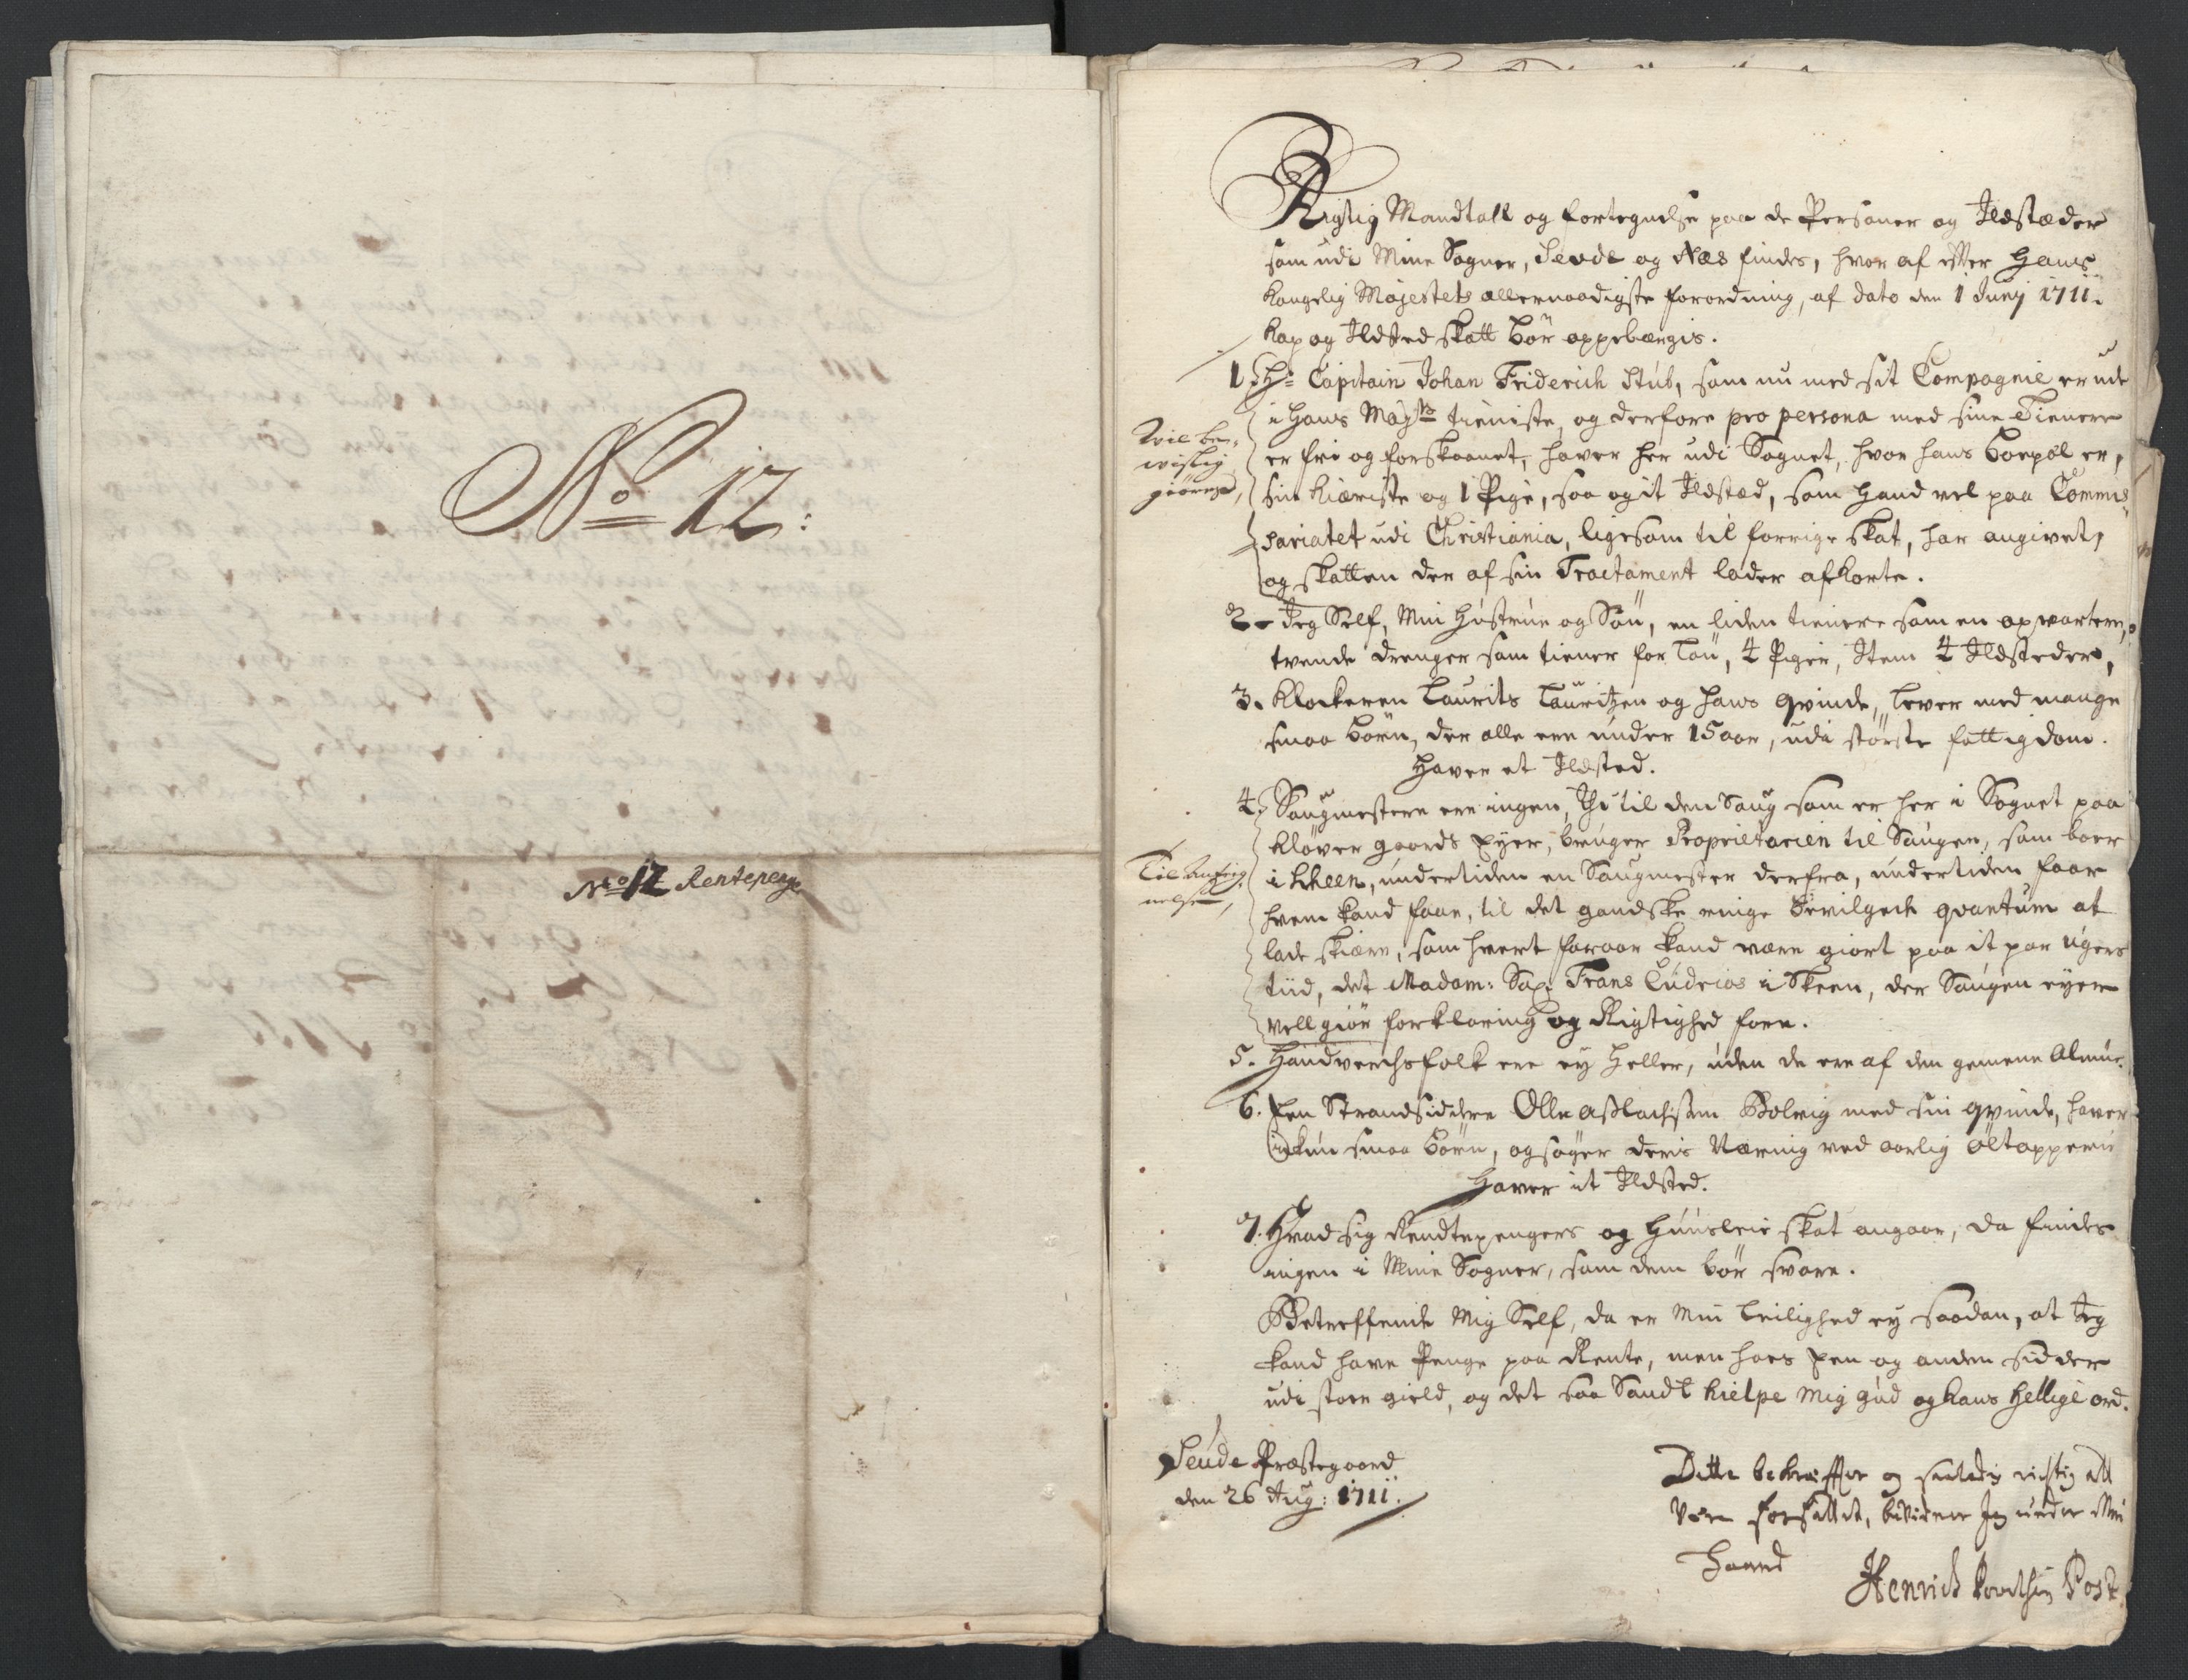 No 12:
No 12 Rentepenge
Rigtig Mandtall og fortegnelse paa de Personer og Ildstæder
som udi Mine Sogner, Seude og Næs findes, hvor af efter Hans
Kongelig Majestets allernaadigste forordning, af dato den 1 Junij 1711.
Kop og Ildsted skatt bör oppebærgis.
1. Hr Capitain Johan Friderich Stub, som nu med sit Compagnie er ude
i Hans Maysts tieniste, og derfore pro persona med sine Tienere
er fri og forskaanet, haver her udi Sognet, hvor hans boepæl er,
sin Kiæriste og 1 Pige, saa og it Ildstæd, som hand vel paa Commis
sariatet udi Christiania, ligesom til forrige skat, har angivet,
og skatten der af sin Tractament lader afkorte.
Vil be-
vislig
giöres,
2. Jeg Self, Min Hustrue og Sön, en liden tienere som en opvarter,
tvende drenger som tiener for Lön, 4 Piger, Item 4 Ildsteder,
3. Klockeren Laurits Lauritzen og hans qvinde, lever med mange
smaa Börn, der alle ere under 15 aar, udi störste fattigdom.
Haver et Ildsted.
4. Saugmestere ere ingen, Thi til den Saug som er her i Sognet paa
Klöver gaards Eyer, bruger Proprietarien til Saugen, som boer
i Scheen, undertiden en Saugmester derfra, undertiden faar
hvem hand kand faae, til det gandske ringe bevilgede qvantum at
lade skiære, som hvert foraar kand være giort paa it par ugers
tiid, det Madam: Sal. Frans Cudrios i Skeen, der Saugen eyer
vell giör forklaring og Rigtighed fore.
Til Anteig-
nelse,
5. Handverchsfolk ere ey heller, uden de ere af den gemene Almue.
6. Een Strandsidere Olle Aslachsen Bolvig med sin qvinde, haver
ickun smaa Börn, og söger deris Næring ved aarlig öltapperie
Haver it Ildsted.
7. Hvad sig Rendtepengers og Huusleie skat angaar, da findes
ingen i Mine Sogner, som dem bör svare.
Betreffende Mig Self, da er Min Leilighed ey saadan, at Jeg
kand have Penge paa Rente, men hoes Een og anden sidder
udi stoer gield, og det saa Sandt hielpe Mig Gud og hans hellige ord.
Seude Præstegaard
den 26 Aug: 1711.
Dette bekræffter og saaledis rigtig att
Være forfattet, bevidner Jeg under Min
Haand
Henrich Post